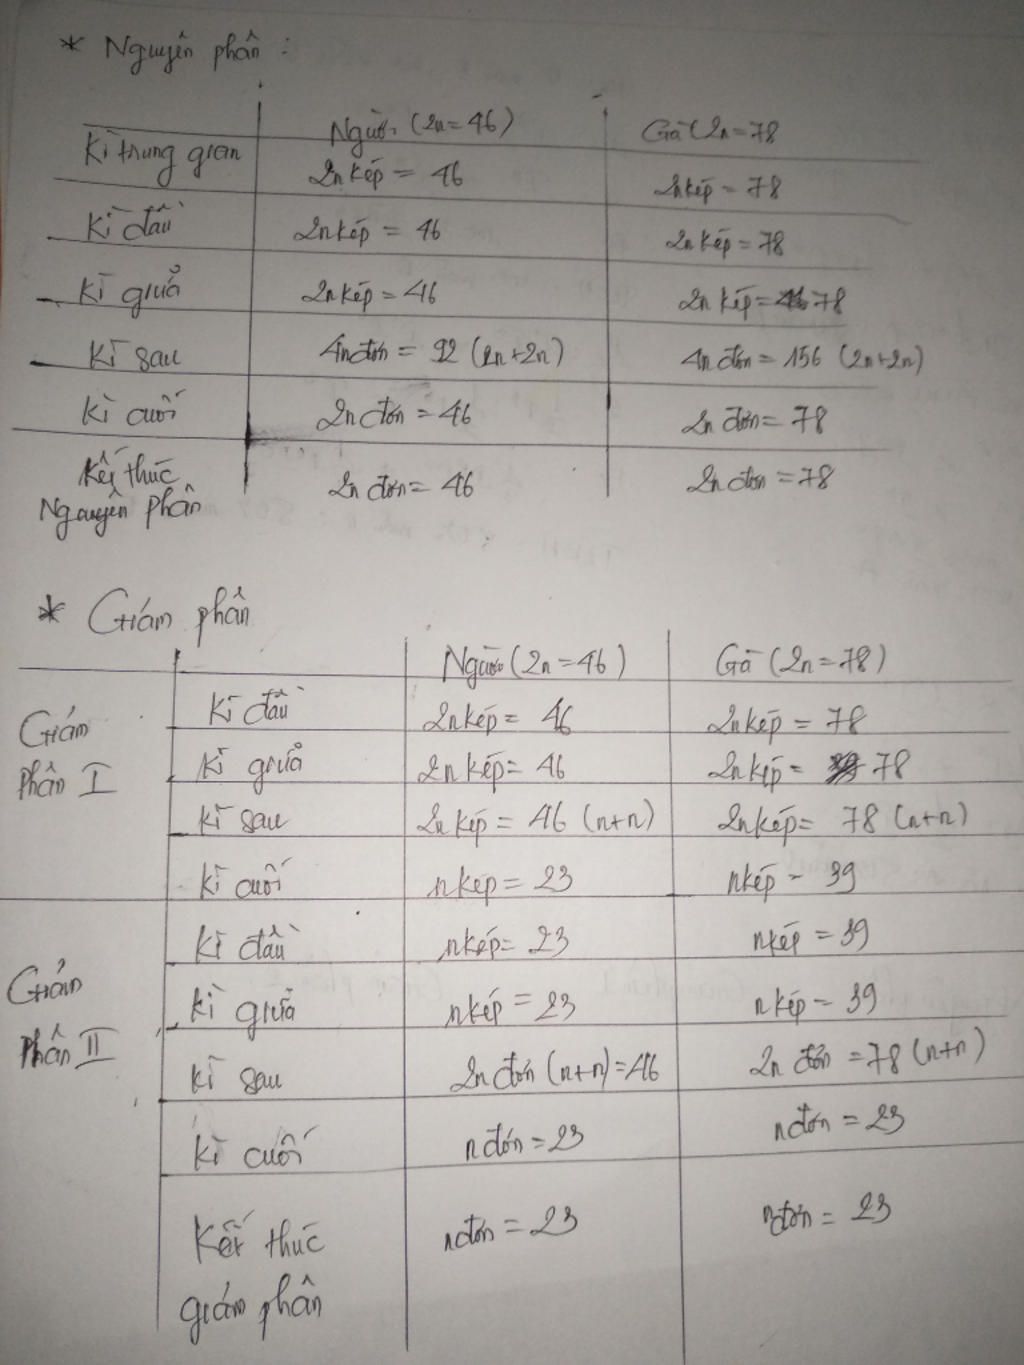 * Nguyên phân :
Người (2n = 46) Gà (2n = 78
Kì trung gian 2n kép = 46 2n kép = 78
Kì đầu 2n kép = 46 2n kép = 78
Kì giữa 2n kép = 46 2n kép = 78
Kì sau 4n đơn = 92 (2n+2n) 4n đơn = 156 (2n+2n)
Kì cuối 2n đơn = 46 2n đơn = 78
Kết thúc 2n đơn = 46 2n đơn = 78
Nguyên phân
* Giảm phân
Người (2n = 46) Gà (2n = 78)
Giảm Kì đầu 2n kép = 46 2n kép = 78
phân I Kì giữa 2n kép = 46 2n kép = 78
Kì sau 2n kép = 46 (n+n) 2n kép = 78 (n+n)
Kì cuối n kép = 23 n kép - 39
Kì đầu n kép = 23 n kép = 39
Giảm Kì giữa n kép = 23 n kép - 39
phân II Kì sau 2n đơn (n+n) = 46 2n đơn = 78 (n+n)
Kì cuối n đơn = 23 n đơn = 23
Kết thúc n đơn = 23 n đơn = 23
giảm phân